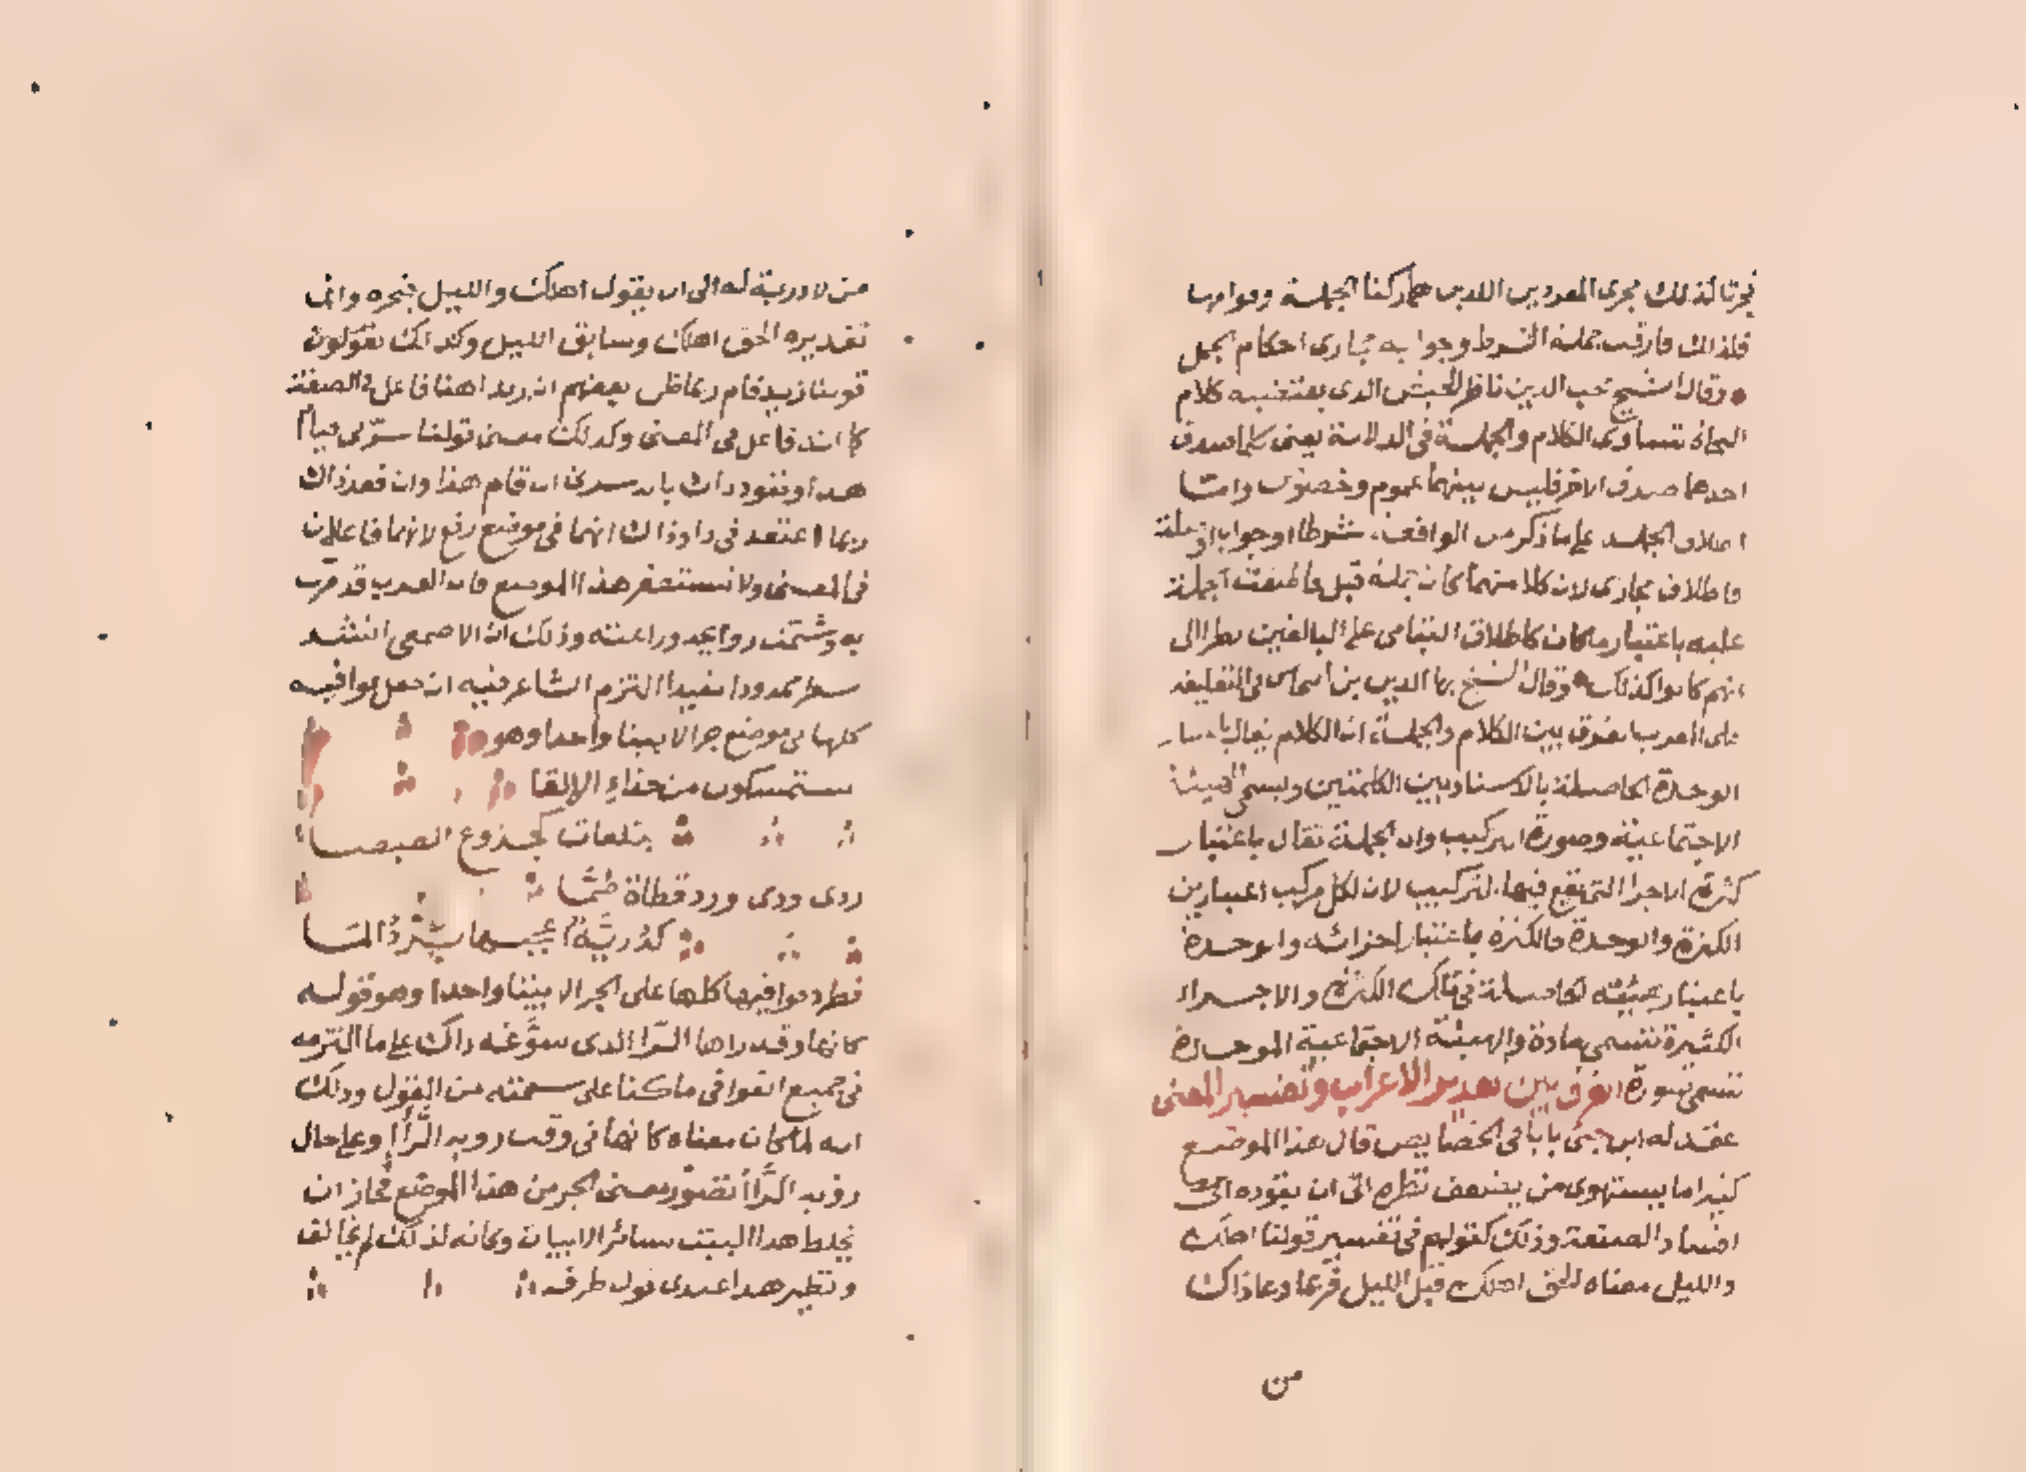 فجرتا لذلك مجرى المفردين اللذين هما ركنا الجملة وقوامها
فلذلك فارقت جملة الشرط وجوابه مجارى احكام الجمل
وقال الشيخ محب الدين ناظر الجيش الذى يقتضيه كلام
النحاة تساوى الكلام والجملة فى الدلالة يعنى كلما صدق
احدهما صدق الاخر فليس بينهما عموم وخصوص واما
اطلاق الجملة على ما ذكر من الواقعة شرطا او جوابا او صلة
فاطلاق مجازى لان كلا منهما كان جملة قبل فاطلقت الجملة
عليه باعتبار ما كان كاطلاق اليتامى على البالغين نظرا الى
انهم كانوا كذلك وقال الشيخ بها الدين بن النحاس فى التعليقة
على المقرب الفرق بين الكلام والجملة ان الكلام يقال باعتبار
الوحدة الحاصلة بالاسناد بين الكلمتين ويسمى الهيئة
الاجتماعية وصورة التركيب وان الجملة تقال باعتبار
كثرة الاجزا التى يقع فيها التركيب لان لكل مركب اعتبارين
الكثرة والوحدة فالكثرة باعتبار اجزائه والوحدة
باعتبار هيئته الحاصلة فى تلك الكثرة والاجزاء
الكثيرة تسمى مادة والهيئة الاجتماعية الموحدة
تسمى صورة الفرق بين تقدير الاعراب وتفسير المعنى
عقد له ابن جنى بابا فى الخصايص قال هذا الموضع
كثيرا ما يستهوى من يضعف نظره الى ان يقوده الى
افساد الصنعة وذلك كقولهم فى تفسير قولنا اهلك
والليل معناه الحق اهلك قبل الليل فربما دعا ذاك
من
من لا دربة له الى ان يقول اهلك والليل فيجره وانما
تقديره الحق اهلك وسابق الليل وكذلك تقولون
قولنا زيد قام ربما ظن بعضهم ان زيدا هنا فاعل فى الصنعة
كما انه فاعل فى المعنى وكذلك معنى قولنا سرنى قيام
هذا وقعود ذاك بانه سرنى ان قام هذا وان قعد ذاك
ربما اعتقد فى ذا وذاك انهما فى موضع رفع لانهما فاعلان
فى المعنى ولا تستصغر هذا الموضع فان العرب قد مرت
به وشمت روايحه وراعته وذلك ان الاصمعى انشد
شعرا ممدودا مقيدا التزم الشاعر فيه ان جعل قوافيه
كلها فى موضع جر الا بيتا واحدا وهو
يستمسكون من حذار الالقا
بتلعات كجذوع الصيصا
ردى ردى ورد قطاة صما
كدرية اعجبها برد الما
فطرد قوافيها كلها على الجر الا بيتا واحدا وهو قوله
كانها وقد راها الرا الذى سوغه ذاك على ما التزمه
فى جميع القوافى ما كنا على سمته من القول وذلك
انه لما كان معناه كانها فى وقت روية الرا او على حال
روية الرا تصور معنى الجر من هذا الموضع فجاز ان
يخلط هذا البيت بسائر الابيات وكانه لذلك لم يخالف
ونظير هذا عندى قول طرفة